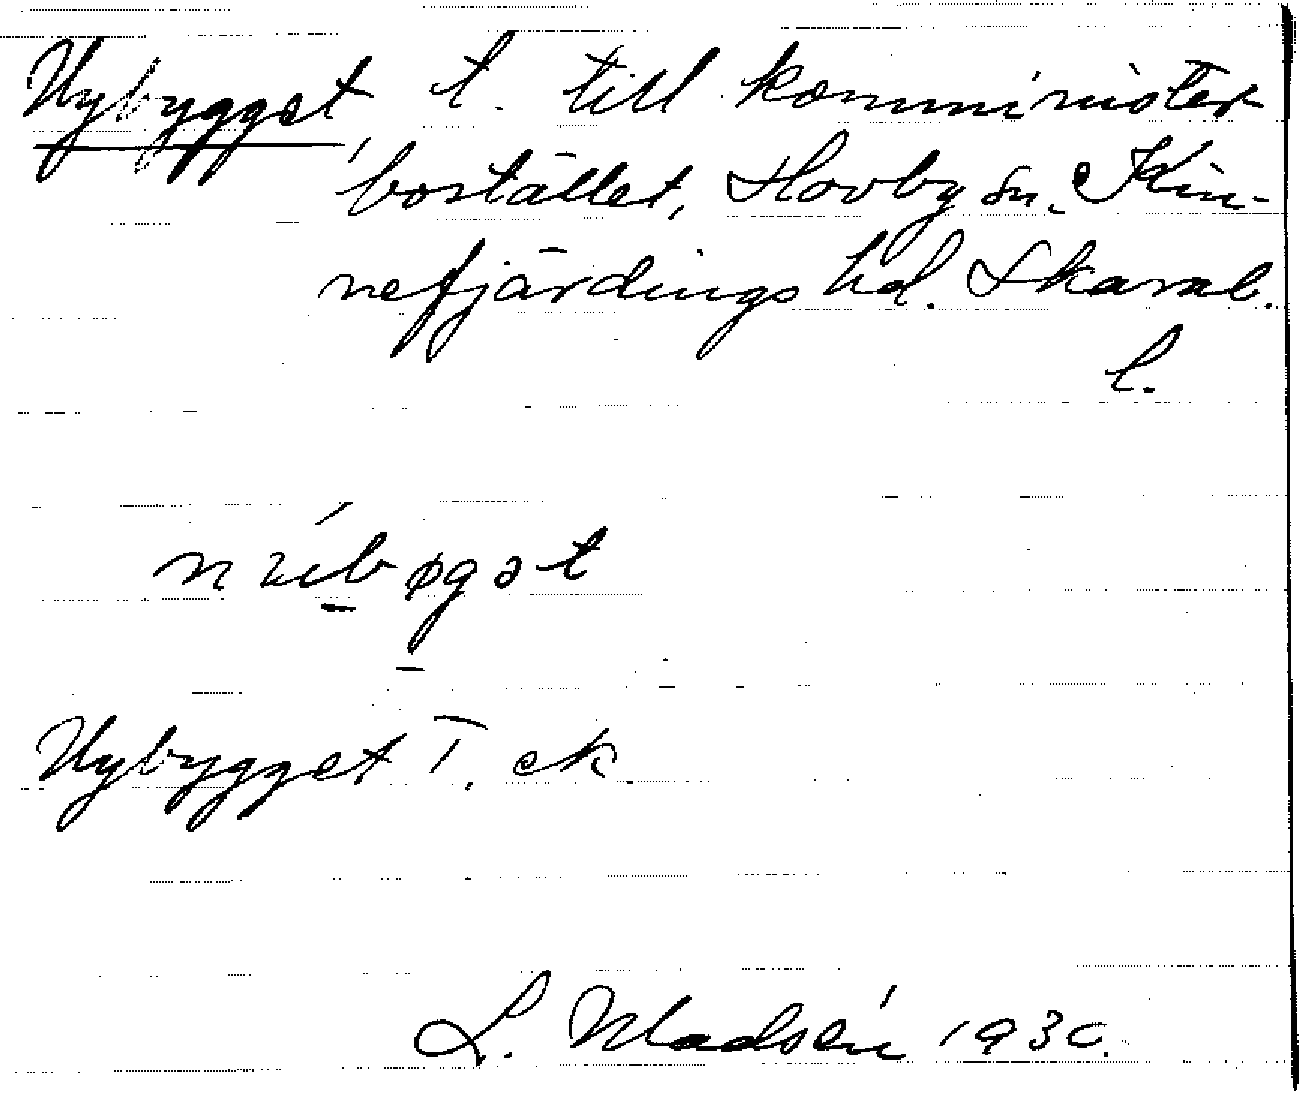 Nybygget, t. till komminister
bostället, Hovby sn. Kin-
nefjärdings hd. Skarab.
l.
Nybygget T. ek
L. Madsén 1930.